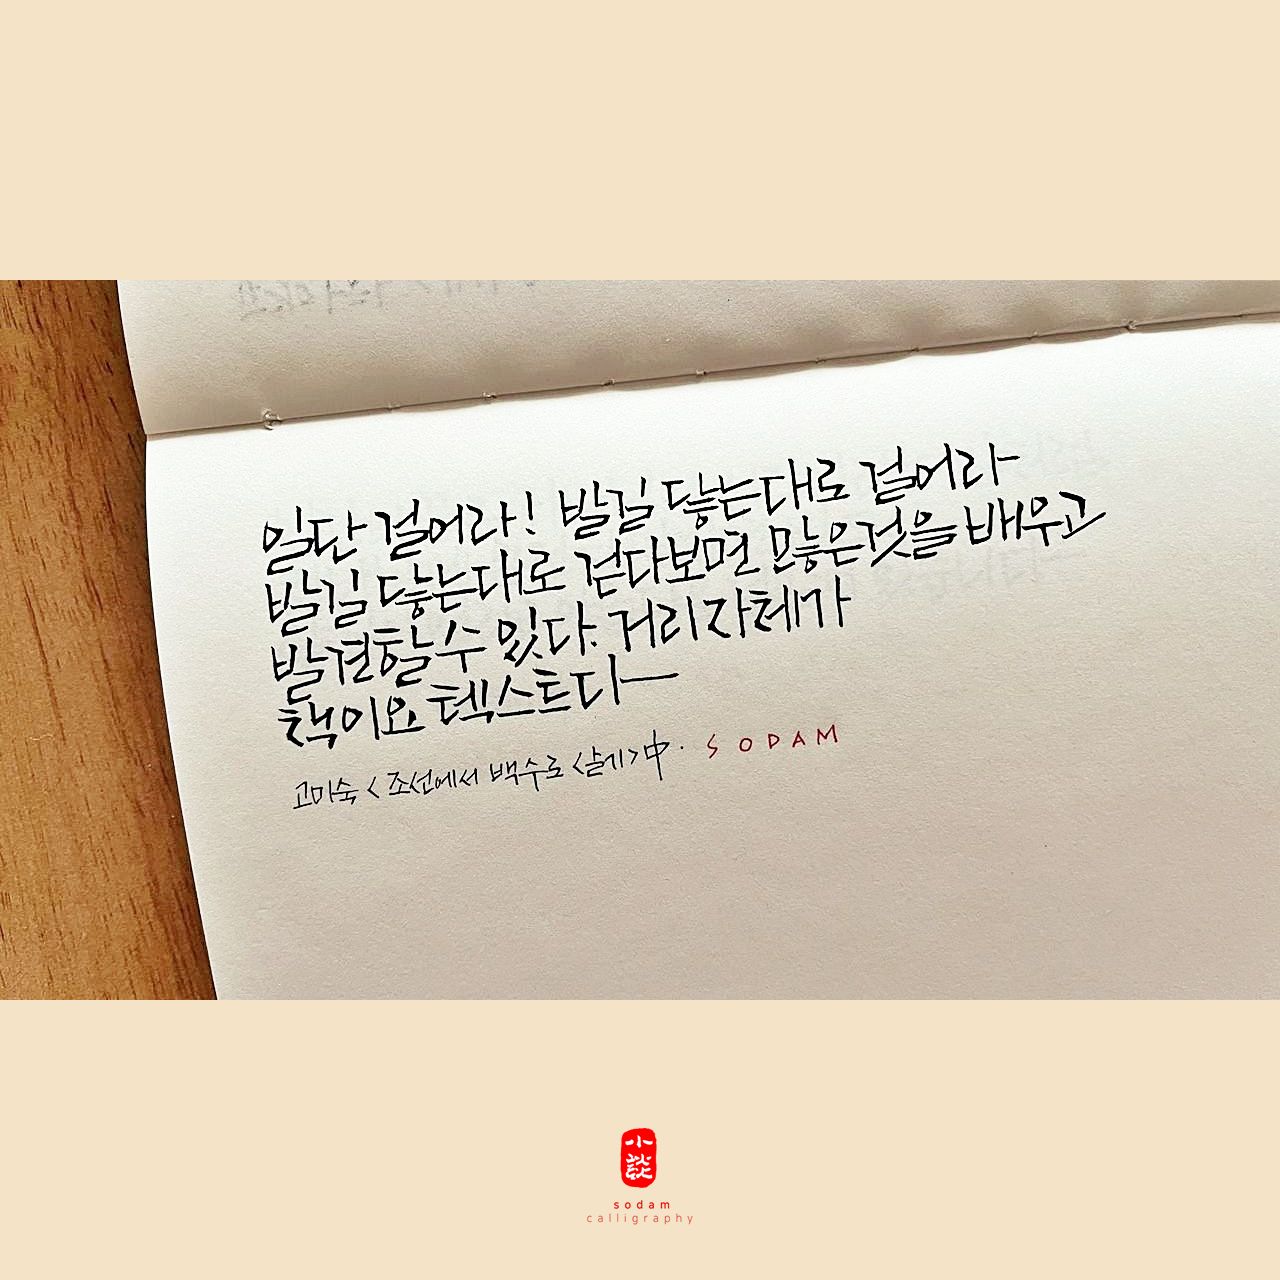 일단 걸어라! 발길 닿는대로 걸어라
발길 닿는대로 걷다보면 많은것을 배우고
발견할수 있다. 거리자체가
책이요 텍스트다
고미숙 <조선에서 백수로 살기>中. SODAM
小談
sodam
calligraphy